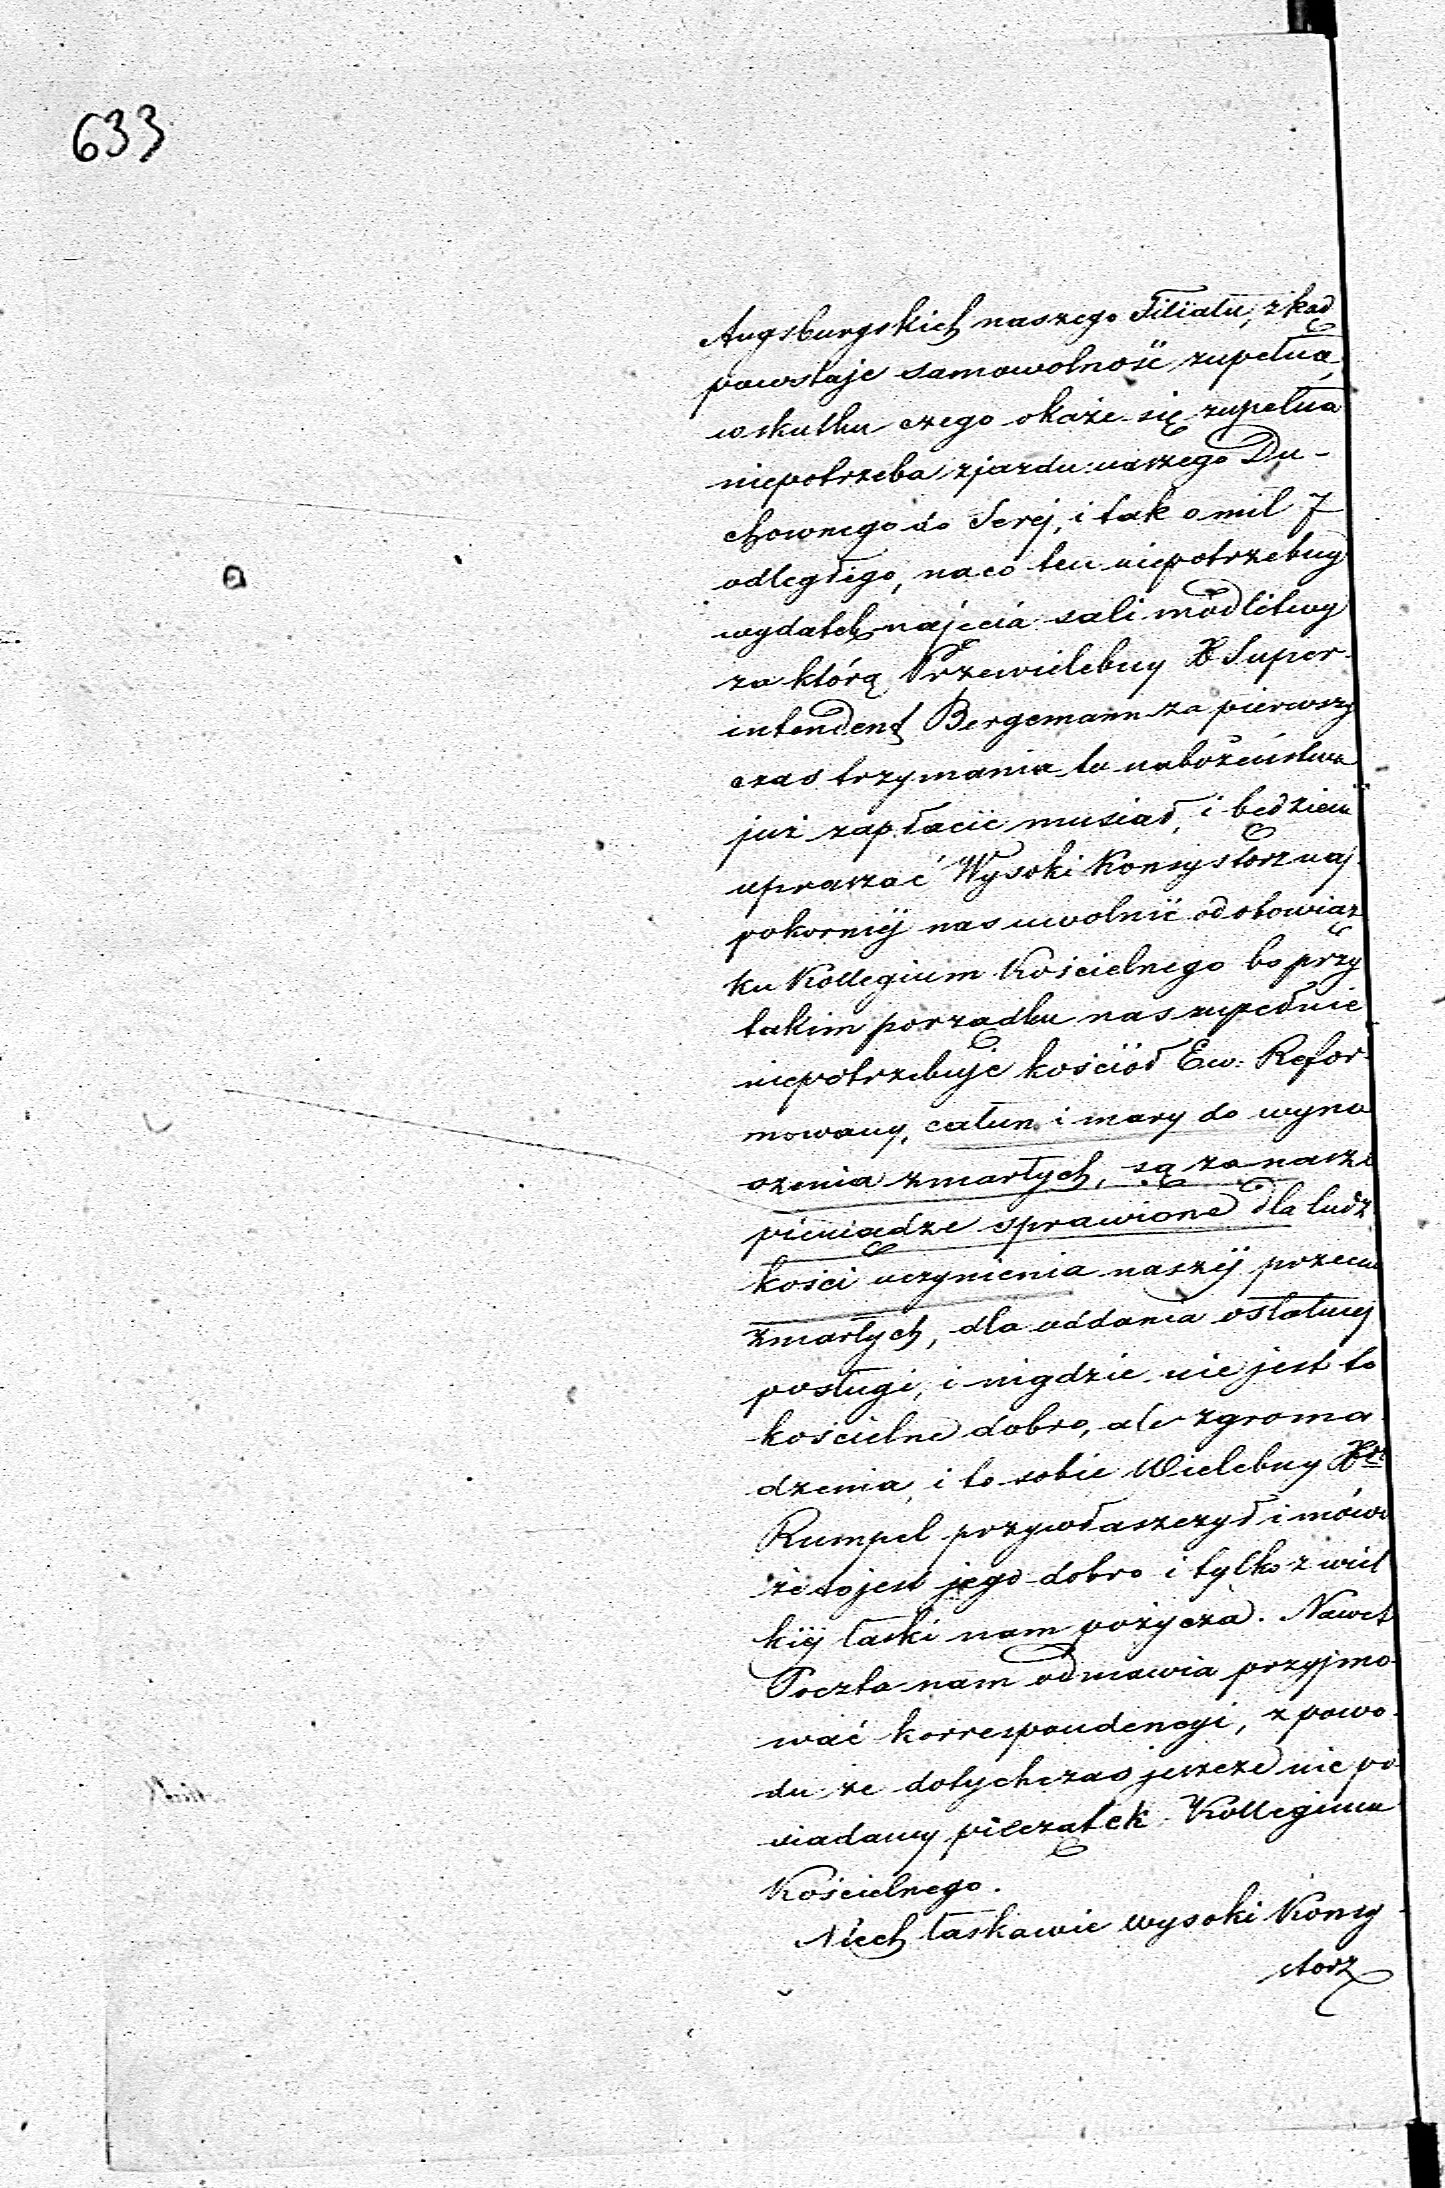 633
Augsburgskich naszego Filiału, zkąd
powstaje samowolność zupełna,
wskutku czego okaże się zupełna
niepotrzeba zjazdu naszego Du-
chownego do Serej, i tak o mil 7
odległego, na co ten niepotrzebny
wydatek najęcia sali modlitwy
za którą Przewielebny X Super-
intendent Bergemann za pierwszy
czas trzymania tu nabożeństwa
już zapłacić musiał, i będziem
upraszać Wysoki Konsystorz naj-
pokorniej nas uwolnić od obowiąz
ku Kollegium Kościelnego bo przy
takim porządku nas zupełnie
niepotrzebuje kościoł Ew: Refor-
mowany, całun i mary do wyno
szenia zmarłych, są za nasze
pieniądze sprawione dla ludz
kości uczynienia naszej przeciw
zmarłych, dla oddania ostatniej
posługi, i nigdzie nie jest to
kościelne dobro, ale zgroma
dzenia, i to sobie Wielebny Xdz
Rumpel przywłaszczył i mówi
że to jest jego dobro i tylko z wiel
kiej łaski nam pożycza. Nawet
Poczta nam odmawia przyjmo-
wać korrespondencyi, z powo-
du że dotychczas jeszcze nie po
siadamy pieczątek Kollegium
Kościelnego.
Niech łaskawie wysoki Konsy-
storz